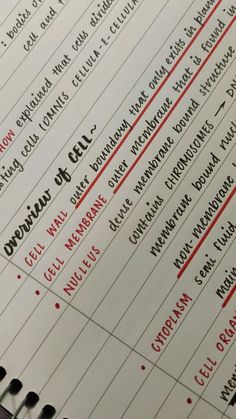 : bodies of
cell and
HOW explained that cells divide
sting cells (OMNIS CELLULA-E CELLULA
overview of CELL~
CELL WALL outer boundary that only exists in plan
CELL MEMBRANE outer membrane that is found in
NUCLEUS membrane bound structure
contains CHROMOSOMES → D
membrane bound nuc
non-membrane
CYTOPLASM semi fluid
main
CELL ORGA
mem